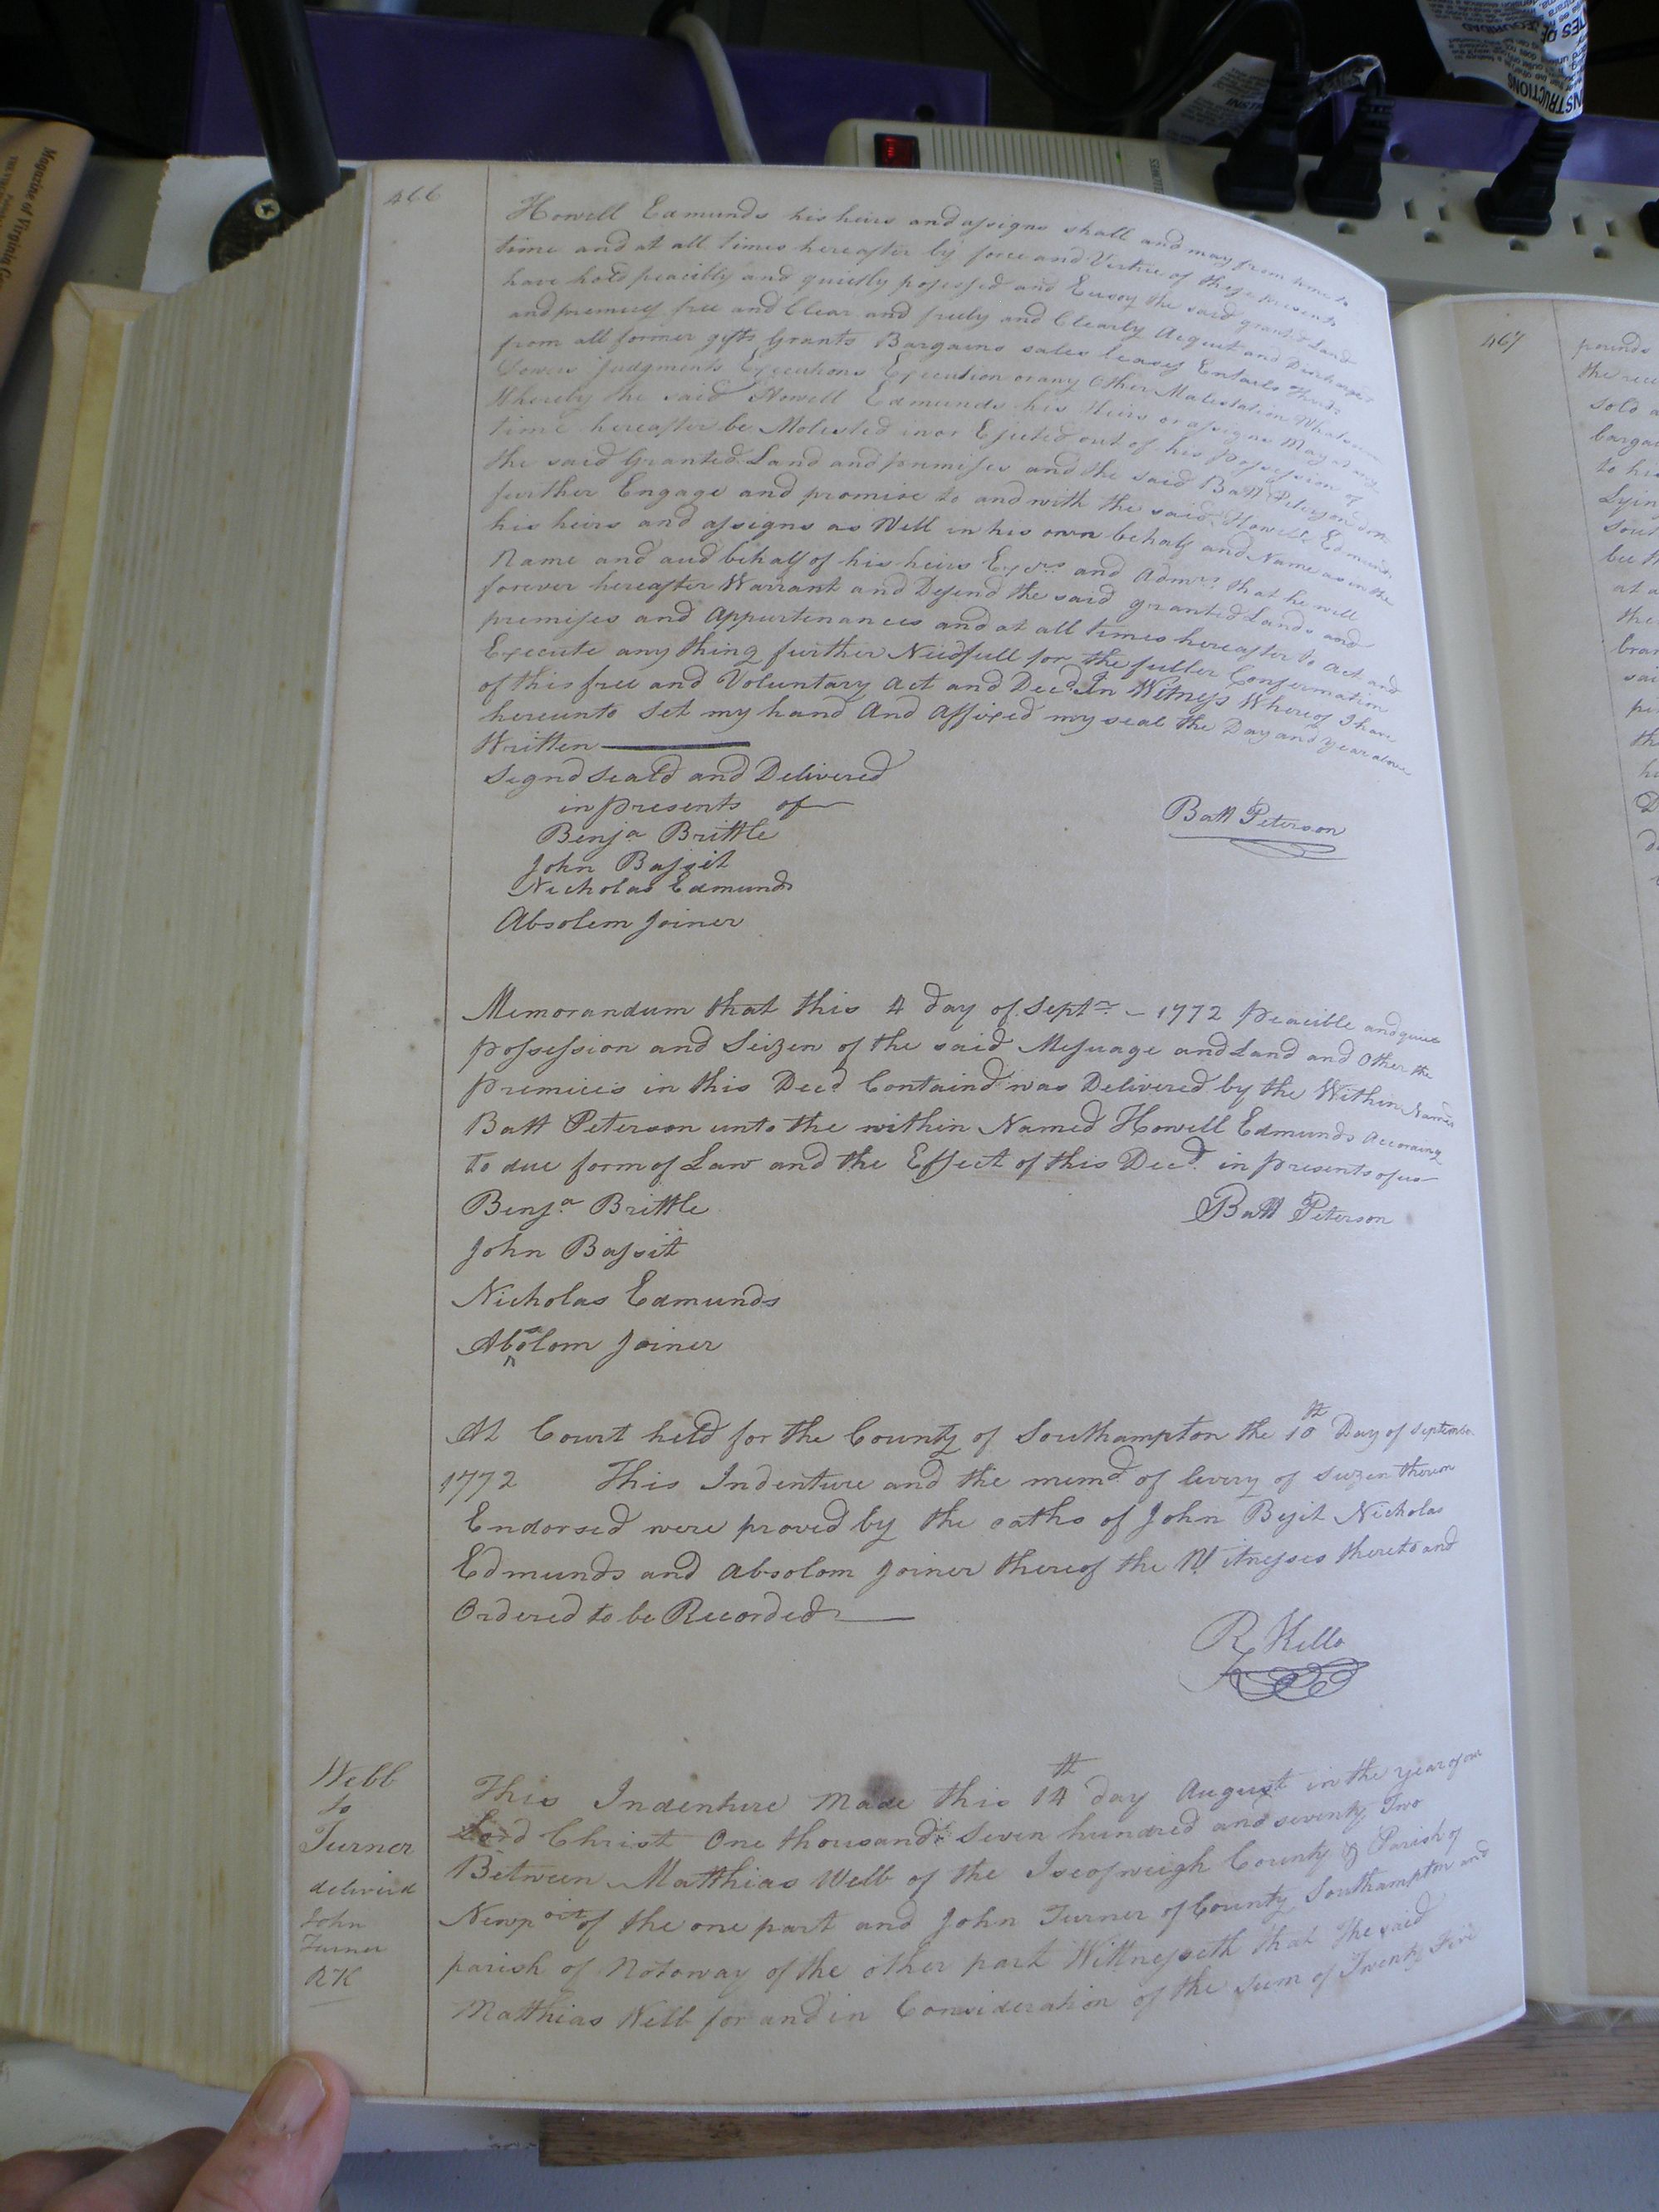 466
Howell Edmunds his heirs and assigns shall and may from time to
time and at all times hereafter by force and Virtue of these presents
have hold peacibly and quietly possessed and Enjoy the said granted Land
and premises free and Clear and freely and Clearly Acquit and Discharged
from all former gifts Grants Bargains sales leases Entails
Dowers Judgments Executions Execution or any Other Molestation Whatsoever
Whereby the said Howell Edmunds his Heirs or assigns May at any
time hereafter be Molested in or Ejected out of his possession of
the said Granted Land and premises and the said Batt Peterson doth
further Engage and promise to and with the said Howell Edmunds
his heirs and assigns as Well in his own behalf and Name as in the
Name and aud behalf of his heirs Exors and Admrs that he will
forever hereafter Warrant and Defend the said granted Lands and
premises and Appurtenances and at all times hereafter to act and
Execute any thing further Needfull for the fuller Confermation
of this free and Voluntary Act and Deed In Witness Whereof I have
hereunto Set my hand And Affixed my seal the Day and year above
Written
Signd Seald and Delivered
in presents of
Benja Brittle
Batt Peterson
John Bassit
Nicholas Edmunds
Absolem Joiner
Memorandum that this 4 day of Septr - 1772 peacible and quiet
possession and Seizen of the said Mesuage and Land and Other the
premices in this Deed Containd was Delivered by the Within Named
Batt Peterson unto the within Named Howell Edmunds According
to due form of Law and the Effect of this Deed in presents of us
Benja Brittle
Batt Peterson
John Bassit
Nicholas Edmunds
Absolom Joiner
At Court held for the County of Southampton the 10th Day of September
1772 This Indenture and the memd of livery of Seizen thereon
Endorsed were proved by the oaths of John Besit Nicholas
Edmunds and Absolom Joiner thereof the Witnesses thereto and
Ordered to be Recorded
R Kello
Webb
to
Turner
deliverd
John
Turner
RK
This Indenture Made this 14th day August in the year of our
Lord Christ One thousand Seven hundred and seventy Two
Between Matthias Webb of the Iseofweigh County & Parish of
Newport of the one part and John Turner of County Southampton and
parish of Notoway of the other part Wittnesseth that the said
Matthias Webb for and in Consideration of the Sum of Twenty Five
467
pounds
sold
to his
Lyin
at a
the
Magazine of Virginia